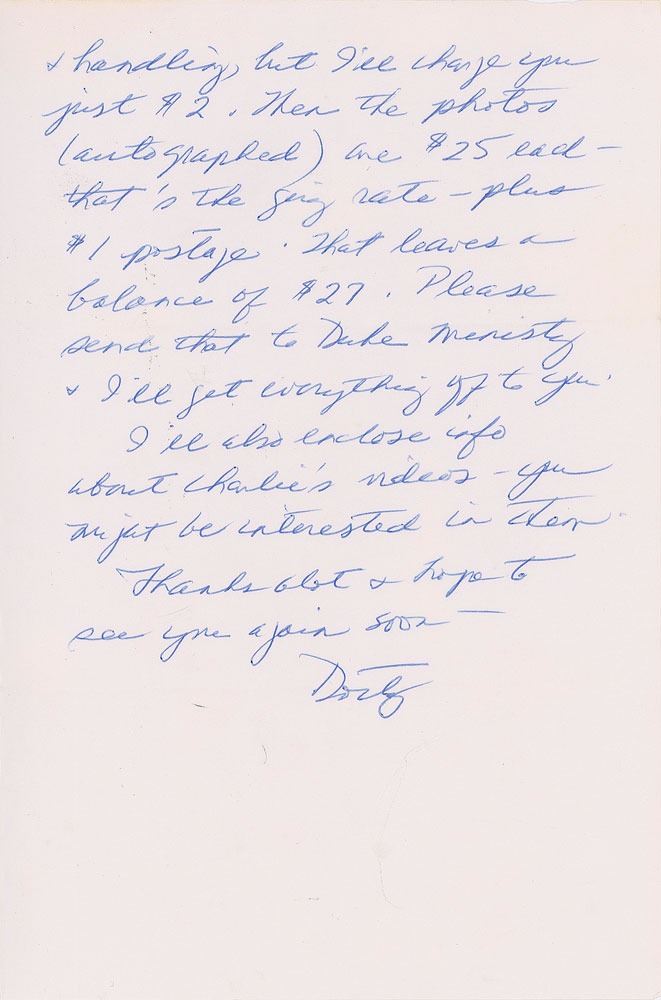 & handling, but I'll charge you
just $2. Then the photos
(autographed) are $25 each -
that's the going rate - plus
$1 postage. That leaves a
balance of $27. Please
send that to Duke Ministry
& I'll get everything off to you.
I'll also enclose info
about Charlie's videos - you
might be interested in them.
Thanks alot & hope to
see you again soon -